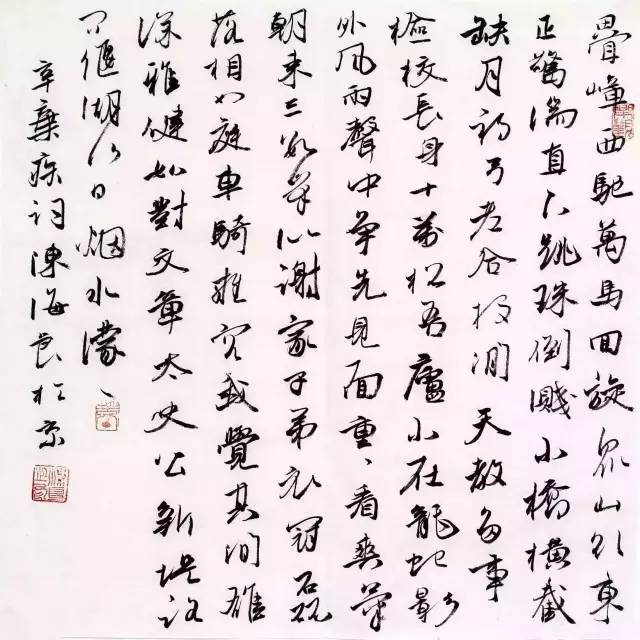 疊嶂西馳萬馬回旋眾山欲東
正驚湍直下跳珠倒濺小橋橫截
缺月初弓老合投閒天教多事
檢校長身十萬松吾廬小在龍蛇影
外風雨聲中爭先見面重、看爽氣
朝來三數峰似謝家子弟衣冠磊
落相如庭車騎雍容我覺其間雄
深雅健如對文章太史公新堤路
問偃湖何日烟水濛、
辛棄疾詞陳海良於京